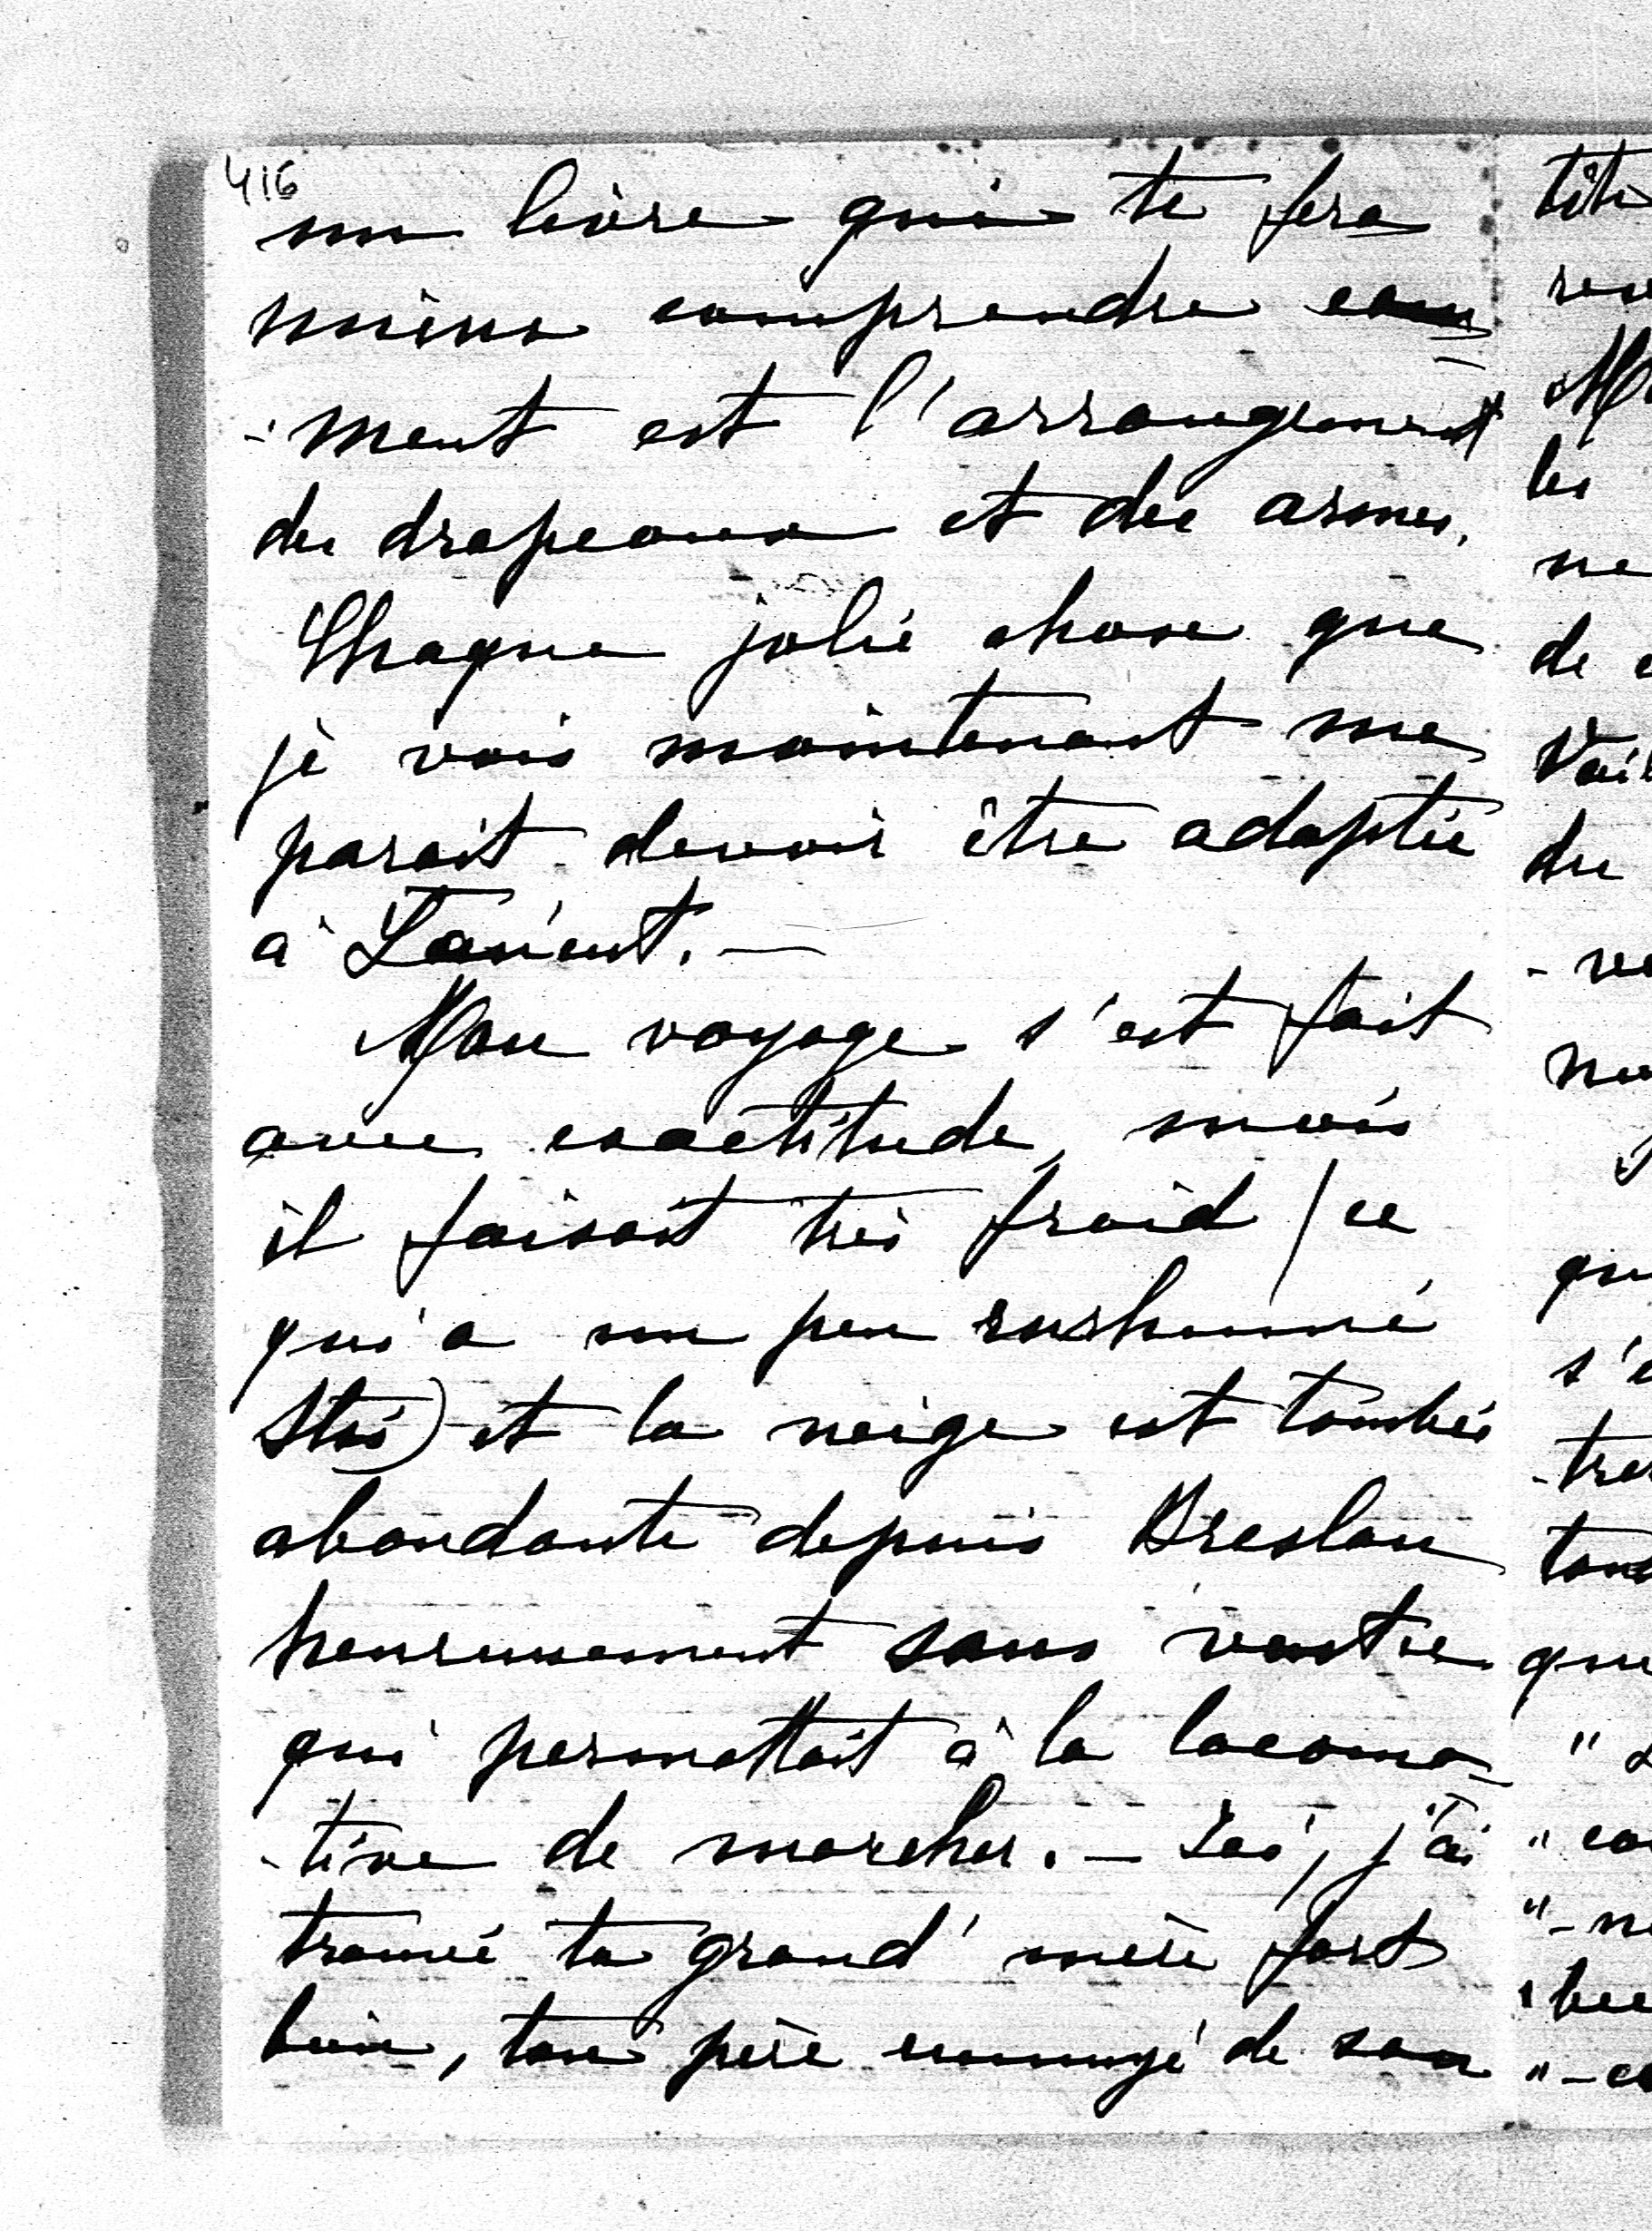 416
un livre qui te fera
mieux comprendre com
-ment est l'arrangement
des drapeaux et des armes.
Chaque jolie chose que
je vois maintenant me
parait devoir être adaptée
à Łańcut. —
Mon voyage s'est fait
avec exactitude, mais
il faisait très froid (ce
qui a un peu enrhumé
Staś) et la neige est tombée
abondante depuis Breslau
heureusement sans
qui permettait à la locomo-
-tive de marcher. — Ici, j'ai
trouvé ta grand' mère fort
bien, ton père ennuyé de son